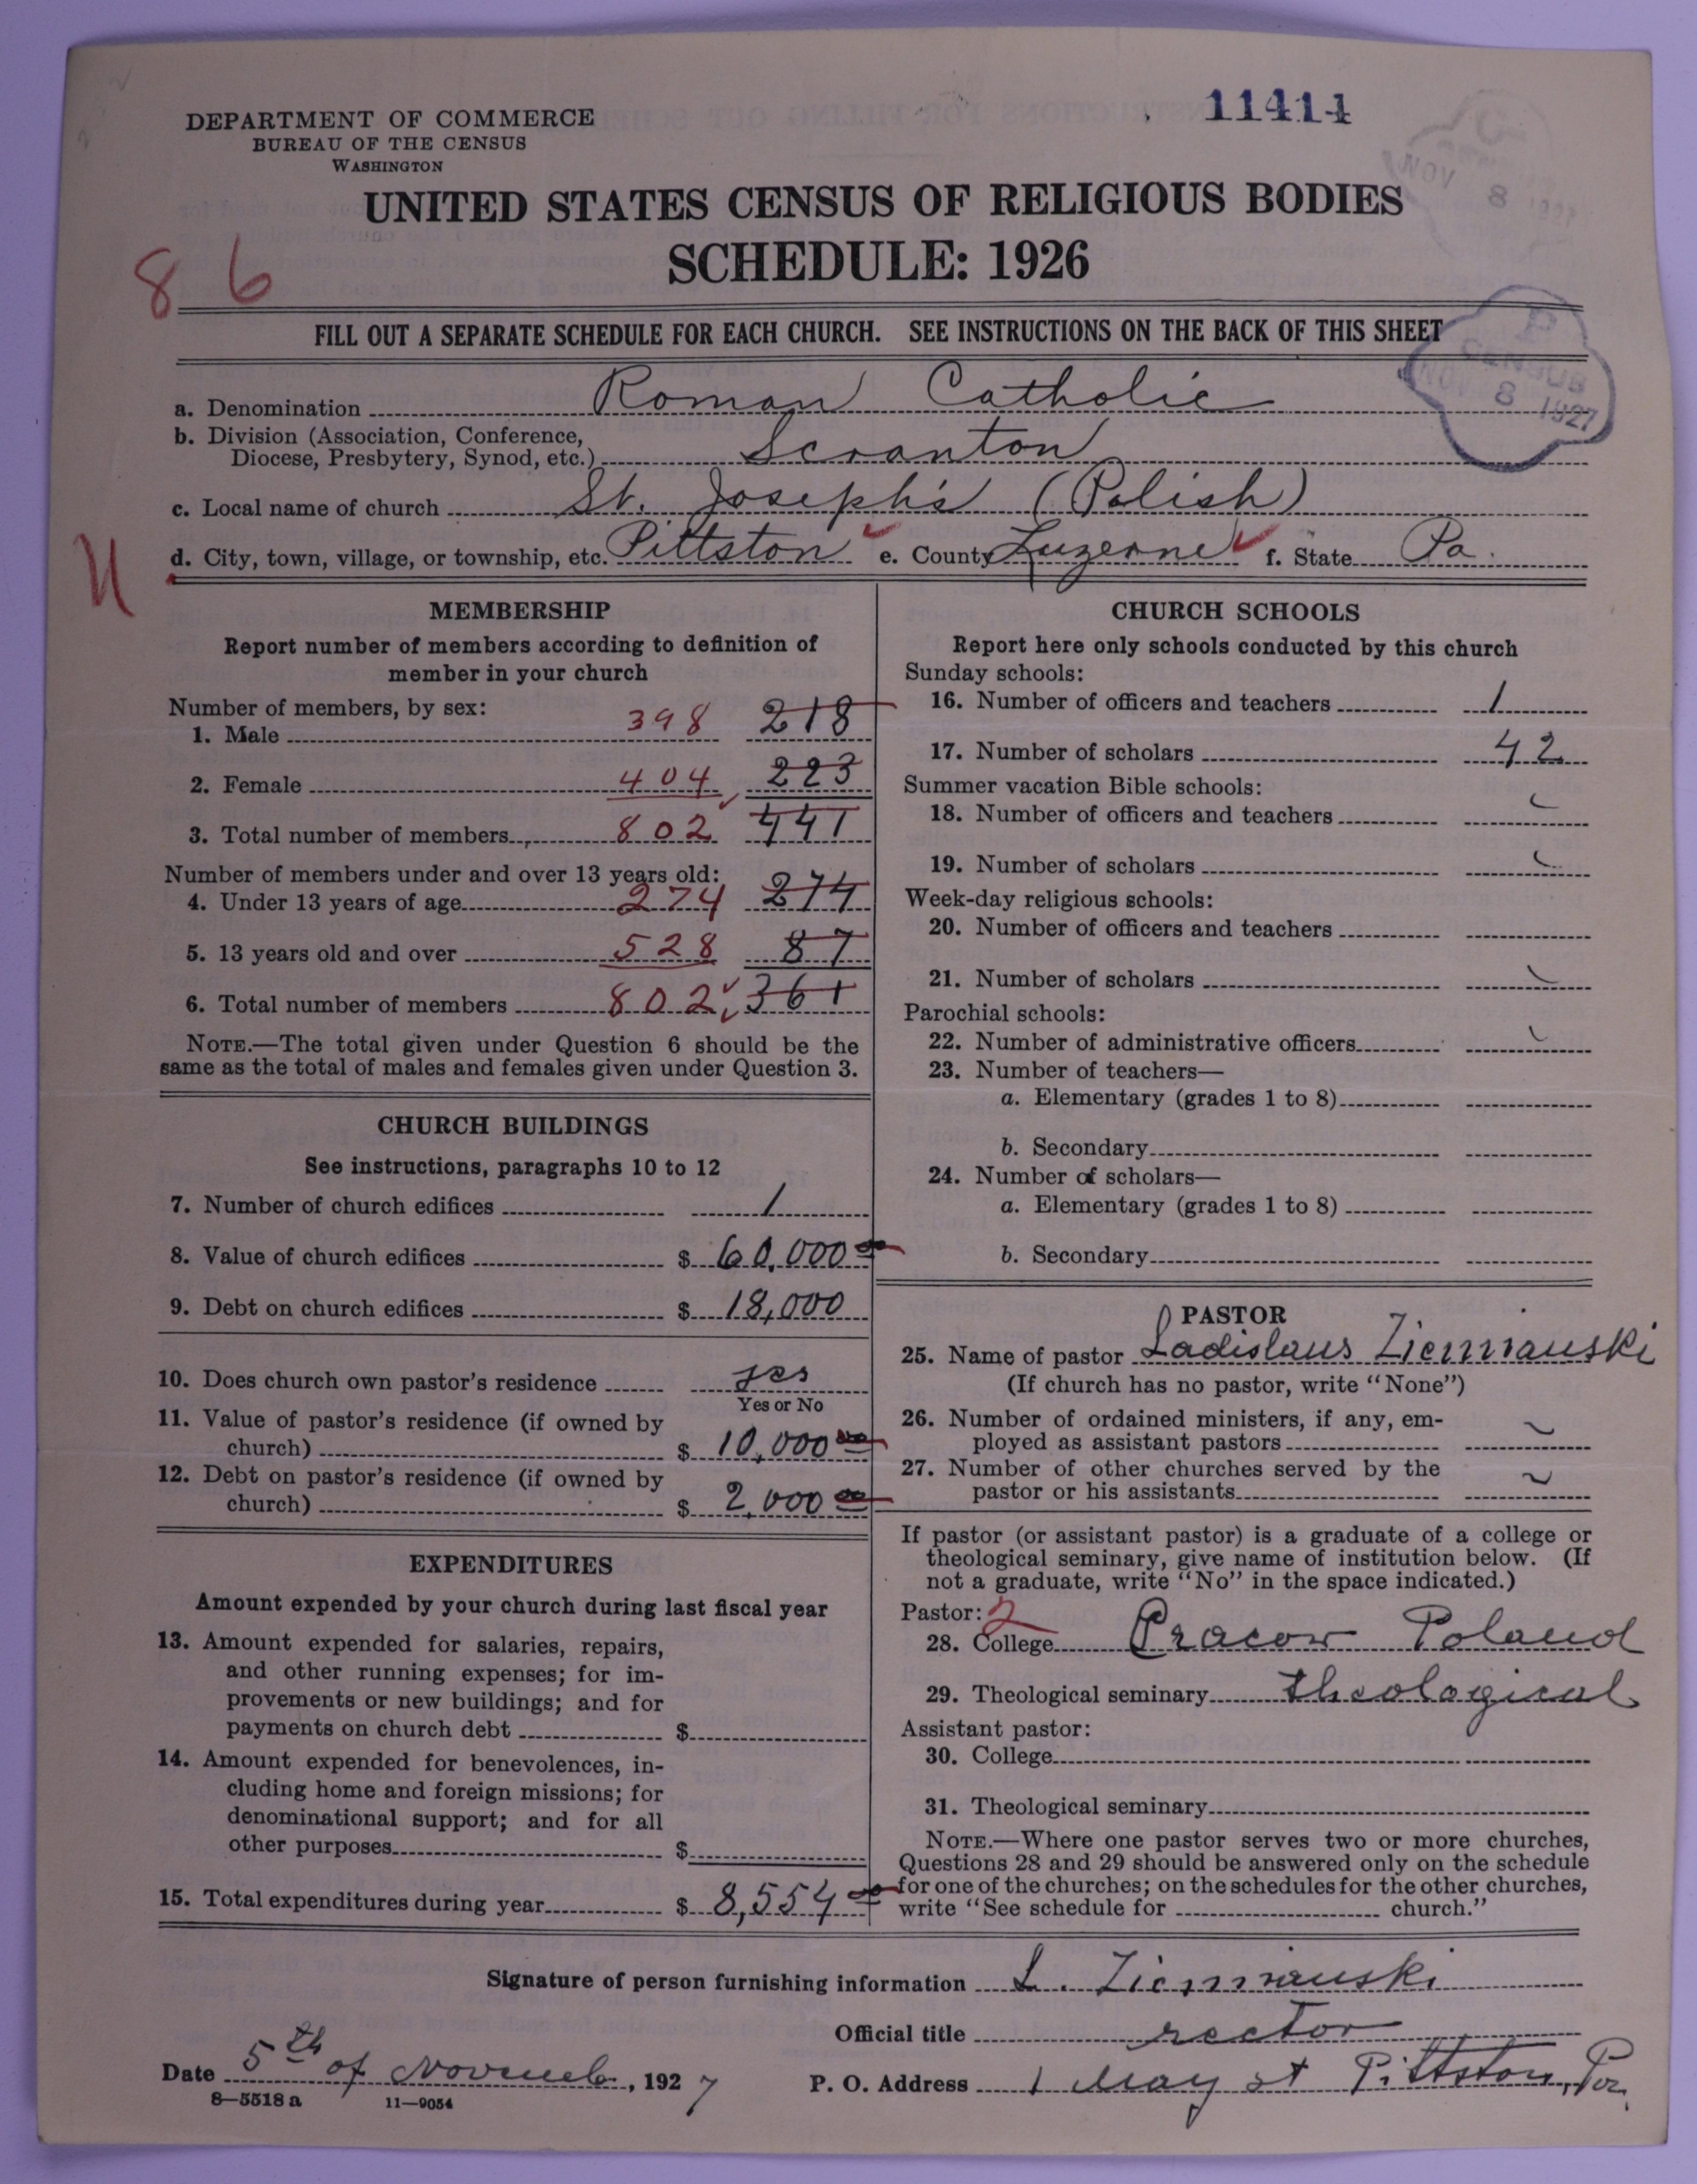 11414
DEPARTMENT OF COMMERCE
BUREAU OF THE CENSUS
WASHINGTON
UNITED STATES CENSUS OF RELIGIOUS BODIES
SCHEDULE: 1926
86
NOV 8 1927
FILL OUT A SEPARATE SCHEDULE FOR EACH CHURCH. SEE INSTRUCTIONS ON THE BACK OF THIS SHEET
P CENSUS NOV 8 1927
a. Denomination Roman Catholic
b. Division (Association, Conference,
Diocese, Presbytery, Synod, etc.) Scranton
c. Local name of church St. Joseph's (Polish)
d. City, town, village, or township, etc. Pittston e. County Luzerne f. State Pa.
MEMBERSHIP
Report number of members according to definition of
member in your church
Number of members, by sex:
1. Male 398 218
2. Female 404 223
3. Total number of members 802 441
Number of members under and over 13 years old:
4. Under 13 years of age 274 274
5. 13 years old and over 528 87
6. Total number of members 802 361
NOTE.—The total given under Question 6 should be the
same as the total of males and females given under Question 3.
CHURCH BUILDINGS
See instructions, paragraphs 10 to 12
7. Number of church edifices 1
8. Value of church edifices $ 60,000
9. Debt on church edifices $ 18,000
10. Does church own pastor's residence yes
Yes or No
11. Value of pastor's residence (if owned by
church) $ 10,000 00
12. Debt on pastor's residence (if owned by
church) $ 2,000 00
EXPENDITURES
Amount expended by your church during last fiscal year
13. Amount expended for salaries, repairs,
and other running expenses; for im-
provements or new buildings; and for
payments on church debt $
14. Amount expended for benevolences, in-
cluding home and foreign missions; for
denominational support; and for all
other purposes $
15. Total expenditures during year $ 8,554
CHURCH SCHOOLS
Report here only schools conducted by this church
Sunday schools:
16. Number of officers and teachers 1
17. Number of scholars 42
Summer vacation Bible schools:
18. Number of officers and teachers
19. Number of scholars
Week-day religious schools:
20. Number of officers and teachers
21. Number of scholars
Parochial schools:
22. Number of administrative officers
23. Number of teachers—
a. Elementary (grades 1 to 8)
b. Secondary
24. Number of scholars—
a. Elementary (grades 1 to 8)
b. Secondary
PASTOR
25. Name of pastor Ladislaus Ziemianski
(If church has no pastor, write "None")
26. Number of ordained ministers, if any, em-
ployed as assistant pastors
27. Number of other churches served by the
pastor or his assistants
If pastor (or assistant pastor) is a graduate of a college or
theological seminary, give name of institution below. (If
not a graduate, write "No" in the space indicated.)
Pastor: 2
28. College Cracow Poland
29. Theological seminary theological
Assistant pastor:
30. College
31. Theological seminary
NOTE.—Where one pastor serves two or more churches,
Questions 28 and 29 should be answered only on the schedule
for one of the churches; on the schedules for the other churches,
write "See schedule for church."
Signature of person furnishing information L. Ziemianski
Official title rector
Date 5th of November, 1927 P. O. Address 1 May st Pittston, Pa.
8—5518 a 11—9054